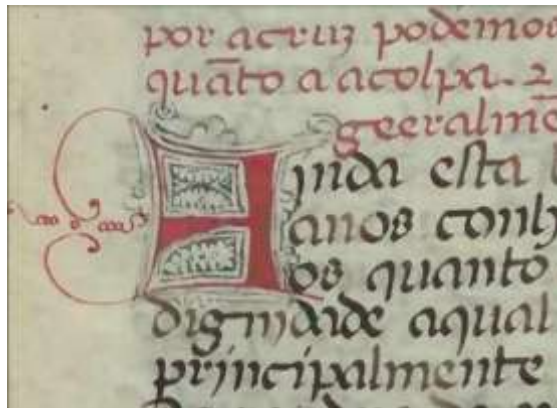 por a cruz podemos
quãto a a colpa. ⁊
geeralmẽ
Ainda esta
a nos conh
os quanto
dignidade a qual
principalmente